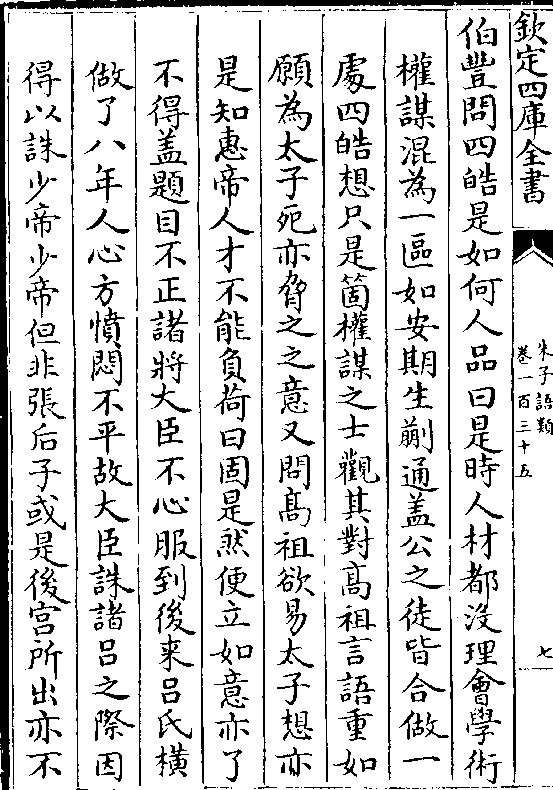 欽定四庫全書
朱子語類
卷一百三十五
七
伯豐問四皓是如何人品曰是時人材都没理會學術
權謀混為一區如安期生蒯通盖公之徒皆合做一
處四皓想只是箇權謀之士觀其對髙祖言語重如
願為太子死亦脅之之意又問髙祖欲易太子想亦
是知惠帝人才不能負荷曰固是然便立如意亦了
不得盖題目不正諸將大臣不心服到後来吕氏橫
做了八年人心方憤悶不平故大臣誅諸吕之際因
得以誅少帝少帝但非張后子或是後宫所出亦不